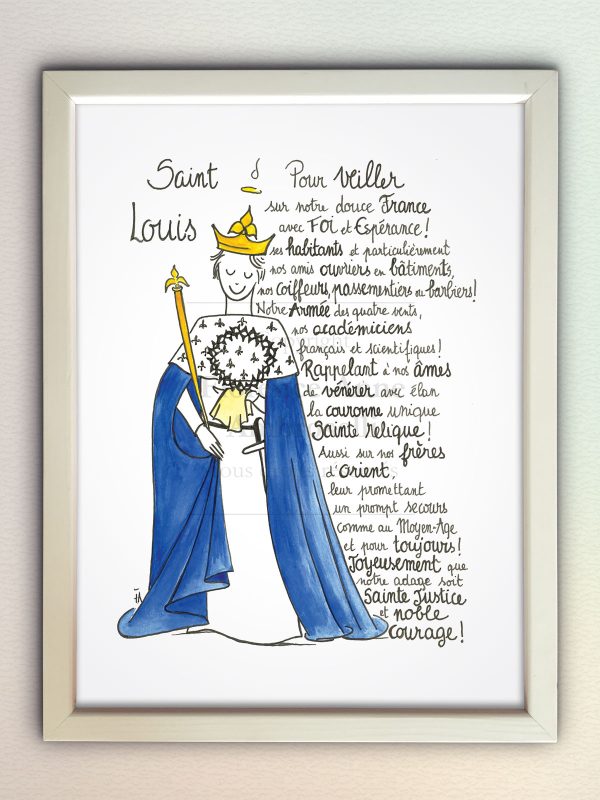 Saint
Louis
Pour veiller
sur notre douce France
avec Foi et Espérance!
ses habitants et particulièrement
nos amis ouvriers en bâtiments,
nos coiffeurs, passementiers ou barbiers!
Notre Armée des quatre vents,
nos académiciens
français et scientifiques!
Rappelant à nos âmes
de vénérer avec élan
la couronne unique
Sainte relique!
Aussi sur nos frères
d'Orient,
leur promettant
un prompt secours
comme au Moyen-Age
et pour toujours!
Joyeusement que
notre adage soit
Sainte Justice
et noble
courage!